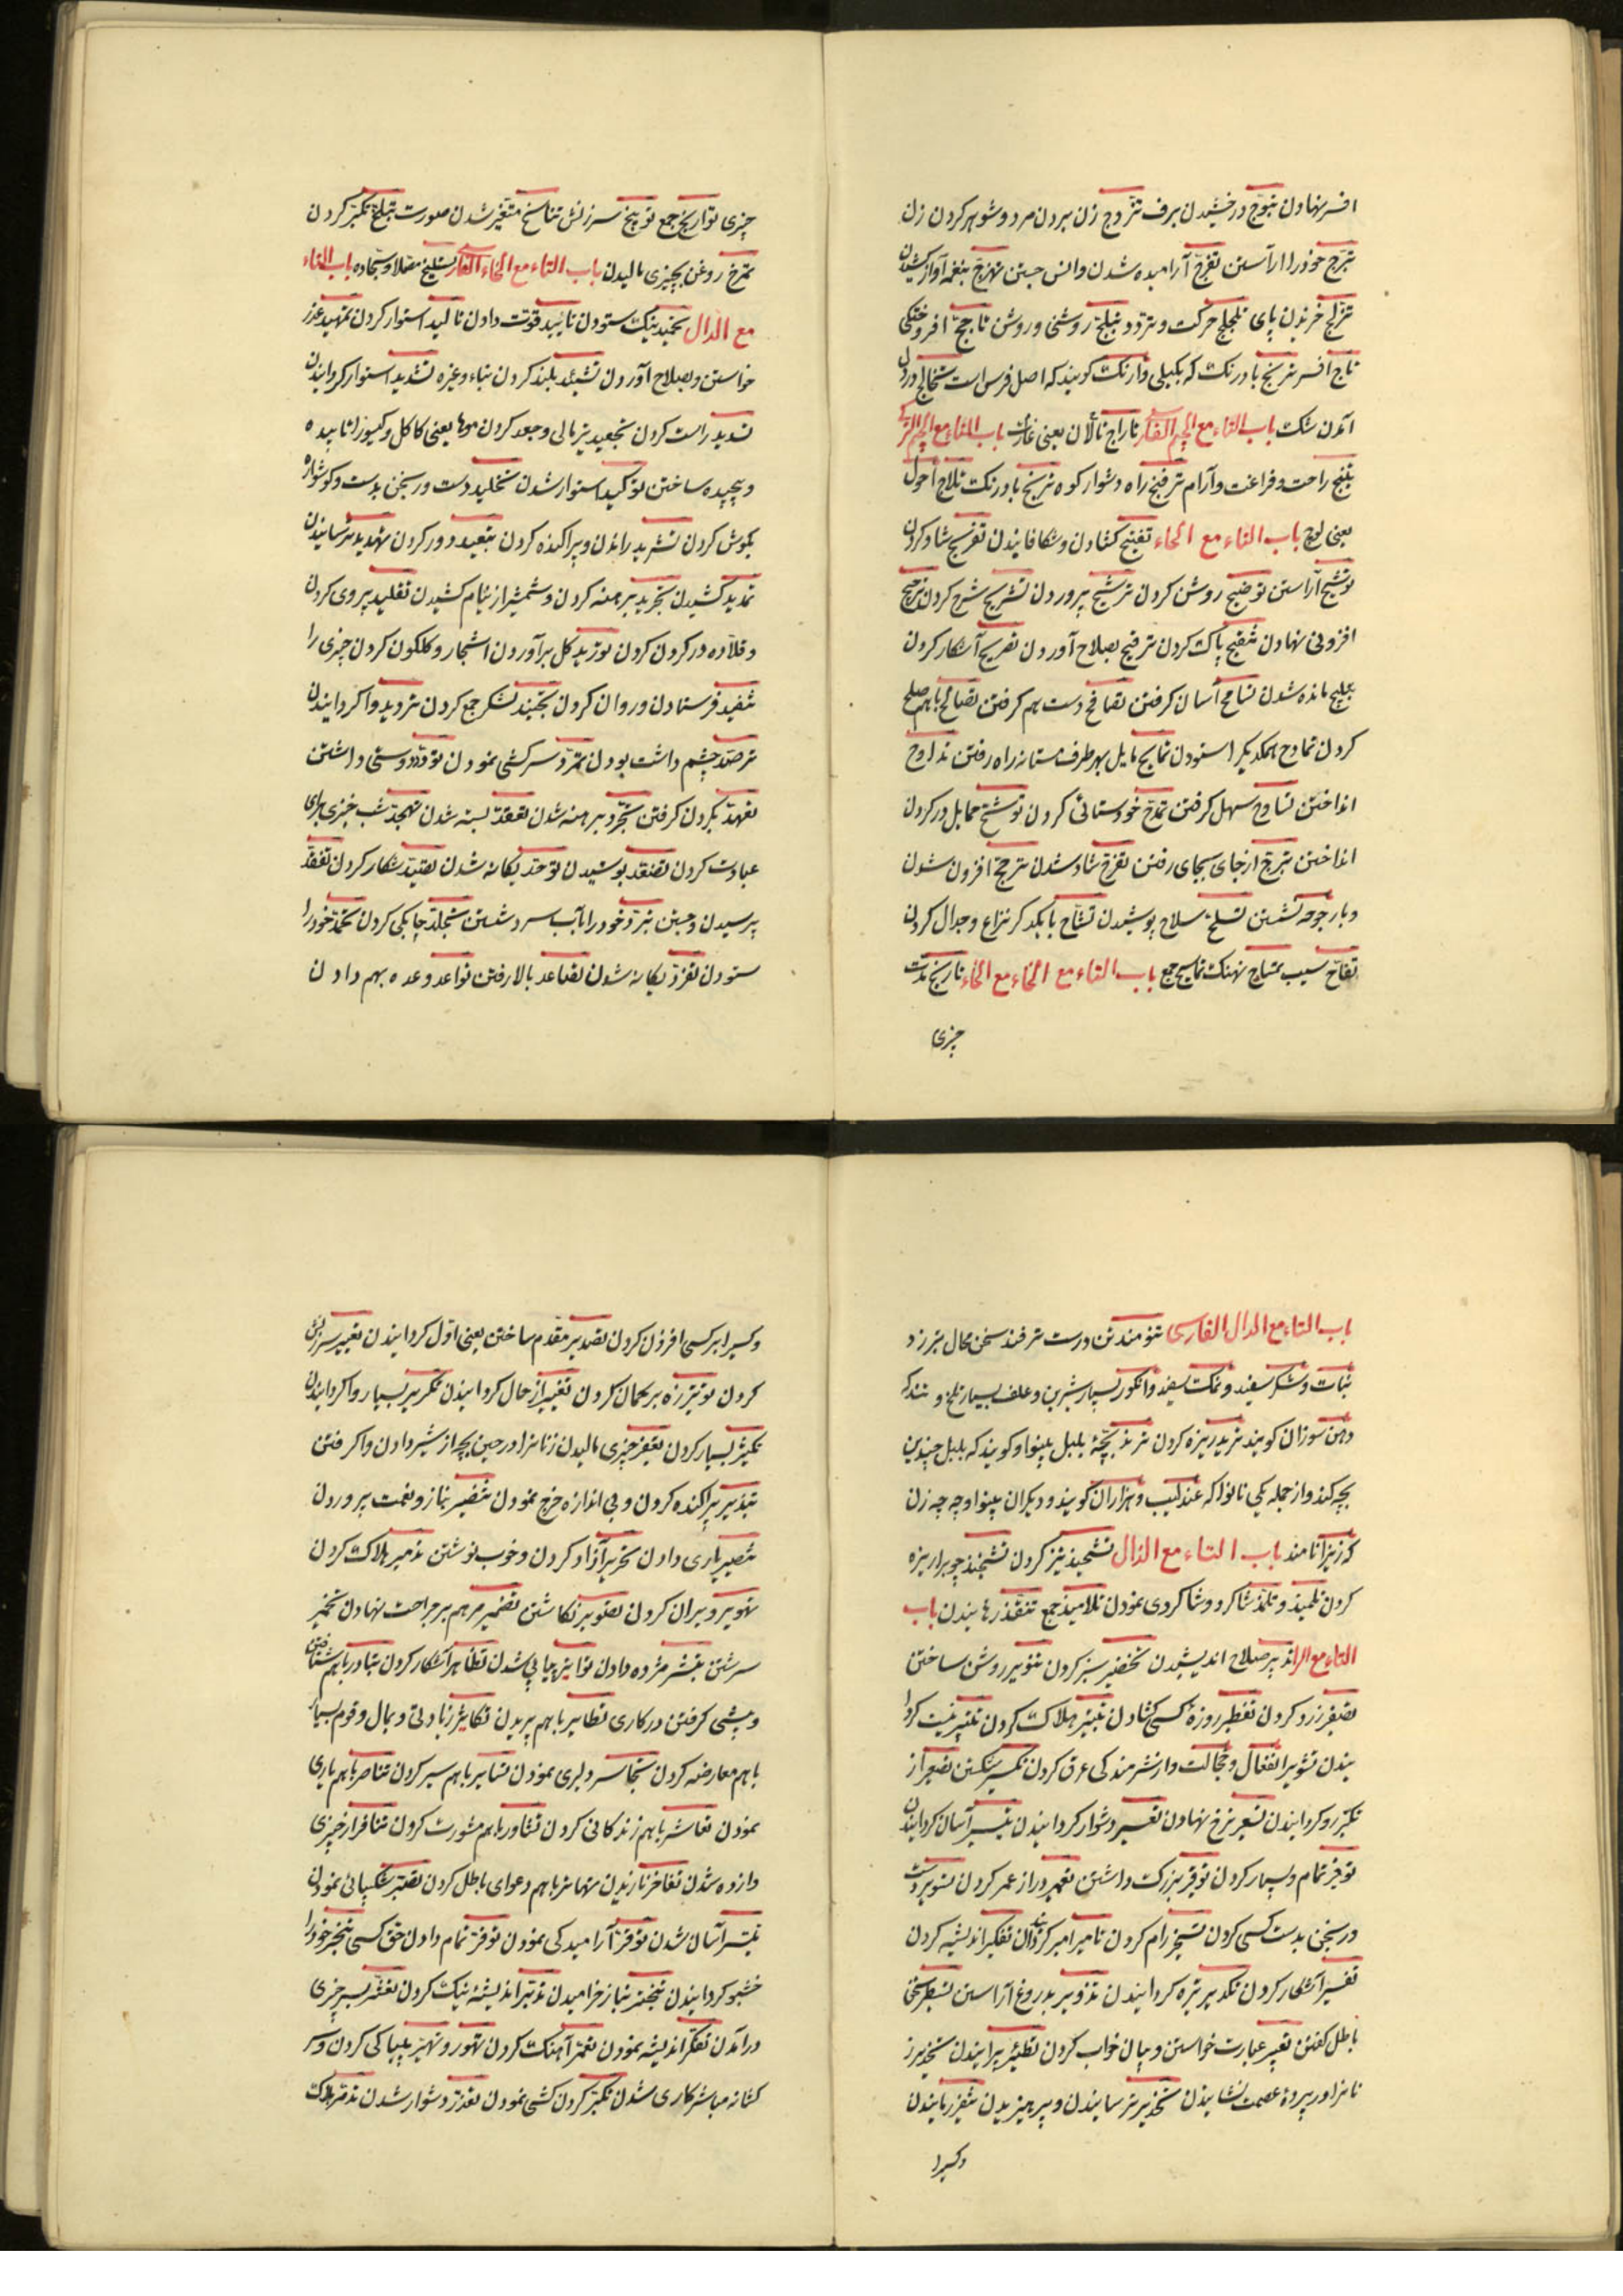 افسر نهادن تبوّج درخشیدن برف تزوّج زن بردن مرد و شوهر کردن زن
تبرّج خود را آراستن تفرّج آرامیده شدن و انس جستن تهزّج بنغمه آواز کشیدن
تزلّج خزیدن پای تلجلج حرکت و تردد تبلّج روشنی و روشن تاجج افروختکی
تاج افسر ترنج بادرنک که بکیلی وارنک کویند که اصل فرس است تخالج در دل
آمدن شک باب التاء مع الجیم الفارسی تاراج تالان یعنی غارت باب التاء مع الجیم
راحت و فراغت و آرام راه دشوار کوه ترنج بادرنک تلاج احول
یعنی لوچ باب التاء مع الحاء تفتیح کشادن و شکافانیدن تفریح شاد کردن
توشیح آراستن توضیح روشن کردن ترشیح پروردن تشریح شرح کردن ترجیح
افزونی نهادن تنقیح پاک کردن ترقیح بصلاح آوردن تصریح آشکار کردن
مانده شدن تسامح آسان کرفتن تصافح دست بهم کرفتن تصالح باهم صلح
کردن تمادح همدیکر را ستودن تمایح مایل بهر طرف مستانه راه رفتن
انداختن سهل کرفتن تمدّح خودستائی کردن توشّح حمایل در کردن
انداختن از جای بجای رفتن تفرّح شاد شدن ترجّح افزون شدن
و بار جوجه نشستن تسلّح سلاح پوشیدن با یکدکر نزاع و جدال کردن
تفّاح سیب تمساح نهنک تماسیح جمع باب التاء مع الخاء تاریخ مدّت
چیزی
چیزی تواریخ جمع توبیخ سرزنش تناسخ متغیّر شدن صورت تبلّخ تکبّر کردن
تمرّخ روغن بچیزی مالیدن باب التاء مع الخاء الفارسی مصلا و سجاده باب التاء
مع الدال تحمید نیک ستودن تایید قوّت دادن تاکید استوار کردن تمهید عذر
خواستن و بصلاح آوردن تشیید بلند کردن بناء و غیره تشدید استوار کردانیدن
تسدید راست کردن تجعید و جعد کردن موها یعنی کاکل و کیسو را تابیده
و پیچیده ساختن توکید استوار شدن تخلید دست ورنجن بدست و کوشواره
بکوش کردن تشرید راندن و پراکنده کردن تبعید دور کردن تهدید ترسانیدن
تمدید کشیدن تجرید برهنه کردن و شمشیر از نیام کشیدن تقلید پیروی کردن
و قلاده در کردن کردن تورید کل برآوردن اشجار و کلکون کردن چیزی را
تنفید فرستادن و روان کردن تجنید لشکر جمع کردن تردید واکردانیدن
ترصّد چشم داشت بودن تمرّد سرکشی نمودن تودّد دوستی داشتن
تعهّد بکردن کرفتن تجرّد برهنه شدن تعقّد بسته شدن تهجّد شب خیزی برای
عبادت کردن پوشیدن توحّد یکانه شدن تصیّد شکار کردن تفقّد
پرسیدن و جستن تبرّد خود را بآب سرد شستن تجلّد چابکی کردن تحمّد خود را
ستودن تفرّد یکانه شدن تصاعد بالا رفتن تواعد وعده بهم دادن
باب التاء مع الدال الفارسی تنومند تن درست ترفند سخن محال تبرزد
نبات و شکر سفید و نمک سفید و انکور بسیار شیرین و علف بسیار تلخ و تند که
دهن سوزان کویند ترید ریزه کردن بچّهٔ بلبل بینوا و کویند که بلبل چندین
بچه کند و از جمله یکی تا نوا که عندلیب و هزاران کویند و دیکران بینوا و چه چه زن
کویند نامند باب التاء مع الذال تشحیذ تیز کردن
کردن تلمیذ و تلمّذ شاکرد و شاکردی نمودن تلامیذ جمع تنقذ رهانیدن باب
التاء مع الراء تدبیر صلاح اندیشیدن تخضیر سبز کردن تنویر روشن ساختن
تصفیر زرد کردن تفطیر روزه کسی کشادن تتبیر هلاک کردن
تشویر انفعال و خجالت و از شرمندکی عرق کردن تکسیر شکستن تصعیر از
تکبّر رو کردانیدن تسعیر نرخ نهادن تعسیر دشوار کردانیدن تیسیر آسان کردانیدن
توفیر تمام و بسیار کردن توقیر بزرک داشتن تعمیر دراز عمر کردن تسویر دست
ورنجن بدست کسی کردن تسخیر رام کردن تامیر امیر کردانیدن تفکیر اندیشه کردن
تفسیر آشکار کردن تکدیر تیره کردانیدن تزویر بدروغ آراستن تسطیر سخن
باطل کفتن تعبیر عبارت خواستن و بیان خواب کردن تطییر پرانیدن تخدیر
در پردهٔ عصمت نشانیدن تحذیر ترسانیدن و پرهیزیدن
و کسیرا
و کسیرا بر کسی افزون کردن تصدیر مقدّم ساختن یعنی اوّل کردانیدن تعییر سرزنش
کردن توتیر زه بر کمان کردن تغییر از حال کردانیدن تکریر بسیار واکردانیدن
تکثیر بسیار کردن چیزی مالیدن زنانرا در حین بچه از شیر دادن واکرفتن
تبذیر پراکنده کردن و بی اندازه خرج نمودن بناز و نعمت پروردن
تنصیر یاری دادن تحریر آزاد کردن و خوب نوشتن تدمیر هلاک کردن
تهویر ویران کردن تصویر نکاشتن تضمیر مرهم بر جراحت نهادن تخمیر
سرشتن تبشیر مژده دادن تواتر پیاپی شدن تظاهر آشکار کردن تبادر باهم شتافتن
و پیشی کرفتن در کاری تطایر باهم پریدن تکاثر زیادتی و بمال و قوم بسیار
باهم معارضه کردن تجاسر دلیری نمودن تسایر باهم سیر کردن تناصر باهم یاری
نمودن تعاشر باهم زندکانی کردن تشاور باهم مشورت کردن تنافر از چیزی
وازده شدن تفاخر نازیدن تهاتر باهم دعوای باطل کردن تصبّر شکیبائی نمودن
تیسّر آسان شدن توقّر آرامیدکی نمودن توفّر تمام دادن حق کسی تبخّر خود را
خشبو کردانیدن تبختر بناز خرامیدن تدبّر اندیشهٔ نیک کردن تعثّر بسر چیزی
درآمدن تفکّر اندیشه نمودن آهنک کردن تهوّر و تهیّر بیباکی کردن و سر
کشانه مباشر کاری شدن تکبّر کردن کشی نمودن تعذّر دشوار شدن تدمّر هلاک